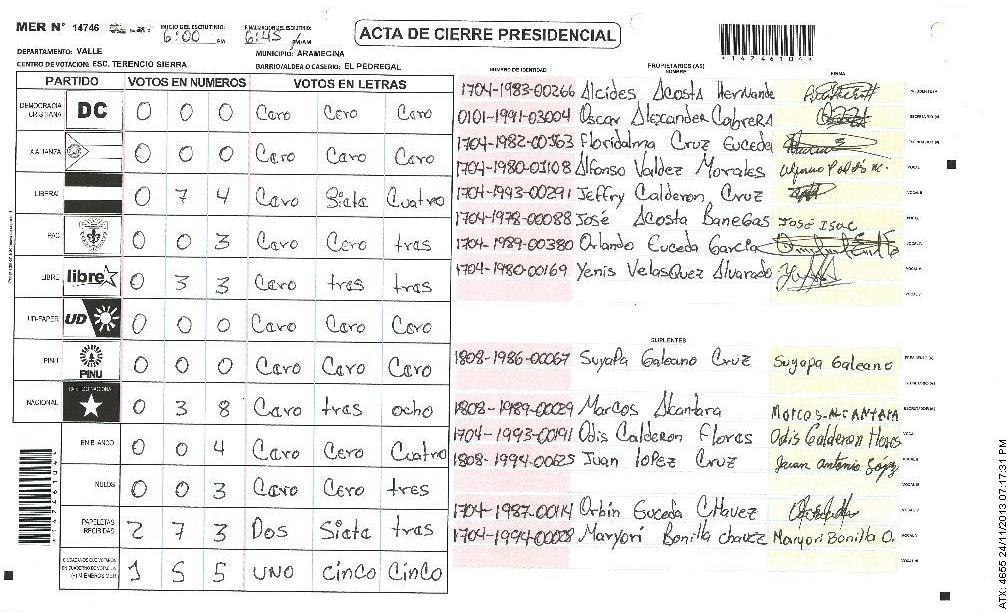 MER N° 14746
INICIO DEL ESCRUTINIO: 6:00 PM
FINALIZACION DEL ESCRUTINIO: 6:45 PM/AM
ACTA DE CIERRE PRESIDENCIAL
*14746104*
DEPARTAMENTO: VALLE
MUNICIPIO: ARAMECINA
CENTRO DE VOTACION: ESC. TERENCIO SIERRA
BARRIO/ALDEA O CASERIO: EL PEDREGAL
PARTIDO VOTOS EN NUMEROS VOTOS EN LETRAS
DEMOCRACIA CRISTIANA DC 0 0 0 Cero Cero Cero
LA ALIANZA 0 0 0 Cero Cero Cero
LIBERAL 0 7 4 Cero Siete Cuatro
PAC 0 0 3 Cero Cero tres
LIBRE libre 0 3 3 Cero tres tres
UD-FAPER UD 0 0 0 Cero Cero Cero
PINU PINU 0 0 0 Cero Cero Cero
NACIONAL 0 3 8 Cero tres ocho
EN BLANCO 0 0 4 Cero Cero Cuatro
NULOS 0 0 3 Cero Cero tres
PAPELETAS RECIBIDAS 2 7 3 Dos Siete tres
CIUDADANOS QUE VOTARON EN CUADERNO DE VOTACION (+) MIEMBROS MER 1 5 5 UNO CINCO CINCO
NUMERO DE IDENTIDAD
PROPIETARIOS (AS)
NOMBRE
FIRMA
1704-1983-00266 Alcides Acosta Hernande
0101-1991-03004 Oscar Alexander Cabrera
1704-1982-00363 Floridalma Cruz Euceda
1704-1980-01108 Alfonso Valdez Morales
1704-1993-00291 Jeffry Calderon Cruz
1704-1978-00088 José Acosta Banegas JOSÉ ISAC
1704-1989-00380 Orlando Euceda Garcia
1704-1980-00169 Yenis Velasquez Alvarado
SUPLENTES
1808-1986-00067 Suyapa Galeano Cruz Suyapa Galeano
1808-1989-00029 Marcos Alcantara Marcos-ALCANTARA
1704-1993-00191 Odis Calderon Flores Odis Calderon Flores
1808-1994-00625 Juan lopez Cruz Juan antonio López
1704-1987-00114 Orbin Euceda Chavez
1704-1994-00028 Maryori Bonilla chavez Maryori Bonilla O.
*14746104*
ATX: 4655 24/11/2013 07:17:31 PM